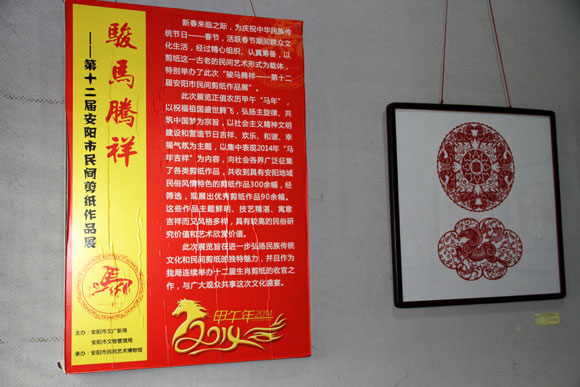 駿馬騰祥
——第十二届安阳市民间剪纸作品展
主办：安阳市文广新局
安阳市文物管理局
承办：安阳市民间艺术博物馆
新春来临之际，为庆祝中华民族传
统节日——春节，活跃春节期间群众文
化生活，经过精心组织、认真筹备，以
剪纸这一古老的民间艺术形式为载体，
特别举办了此次“骏马腾祥——第十二
届安阳市民间剪纸作品展”。
此次展览正值农历甲午“马年”，
以祝福祖国盛世腾飞，弘扬主旋律、共
筑中国梦为宗旨，以社会主义精神文明
建设和营造节日吉祥、欢乐、和谐、幸
福气氛为主题，以集中表现2014年“马
年吉祥”为内容，向社会各界广泛征集
了各类剪纸作品，共收到具有安阳地域
民俗风情特色的剪纸作品300余幅，经
筛选，现展出优秀剪纸作品90余幅。
这些作品主题鲜明、技艺精湛、寓意
吉祥而又风格多样，具有较高的民俗研
究价值和艺术欣赏价值。
此次展览旨在进一步弘扬民族传统
文化和民间剪纸的独特魅力，并且作为
我局连续举办十二届生肖剪纸的收官之
作，与广大观众共享这次文化盛宴。
甲午年2014
2014